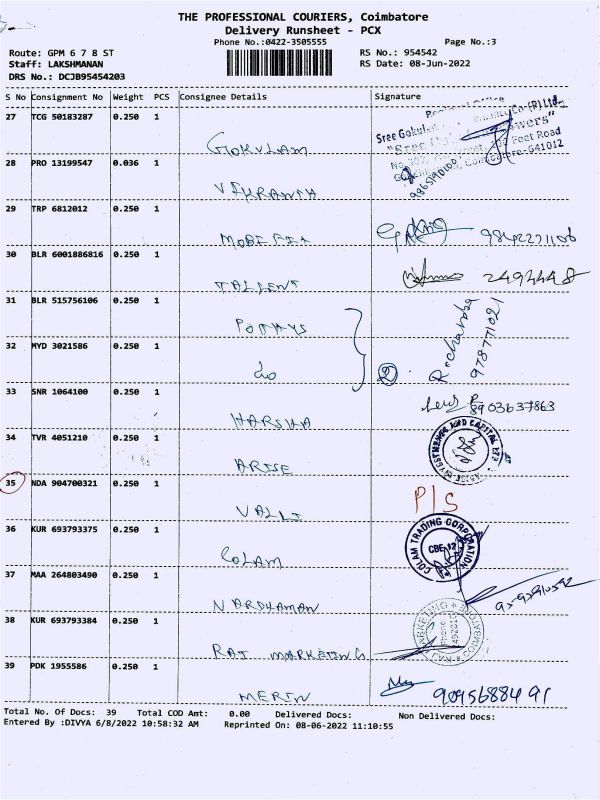 THE PROFESSIONAL COURIERS, Coimbatore
Delivery Runsheet - PCX
Phone No.:0422-3505555 Page No.:3
Route: GPM 6 7 8 ST RS No.: 954542
Staff: LAKSHMANAN RS Date: 08-Jun-2022
DRS No.: DCJB95454203
S No Consignment No Weight PCS Consignee Details Signature
27 TCG 50183287 0.250 1
GOKULAM
28 PRO 13199547 0.036 1
VIKRANTH
29 TRP 6812012 0.250 1
9842271106
30 BLR 6001886816 0.250 1
TALLENT 2494448
31 BLR 515756106 0.250 1
POTHYS
32 MYD 3021586 0.250 1
do 2
33 SNR 1064100 0.250 1
HARSHA 8903637863
34 TVR 4051210 0.250 1
ARISE
35 NDA 904700321 0.250 1 P/S
VALLI
36 KUR 693793375 0.250 1 COLAM TRADING CORPORATION CBE-12
COLAM
37 MAA 264803490 0.250 1
VARDHAMAN
38 KUR 693793384 0.250 1
RAJ MARKETING
39 PDK 1955586 0.250 1
MERIN 9095688491
Total No. Of Docs: 39 Total COD Amt: 0.00 Delivered Docs: Non Delivered Docs:
Entered By :DIVYA 6/8/2022 10:58:32 AM Reprinted On: 08-06-2022 11:10:55